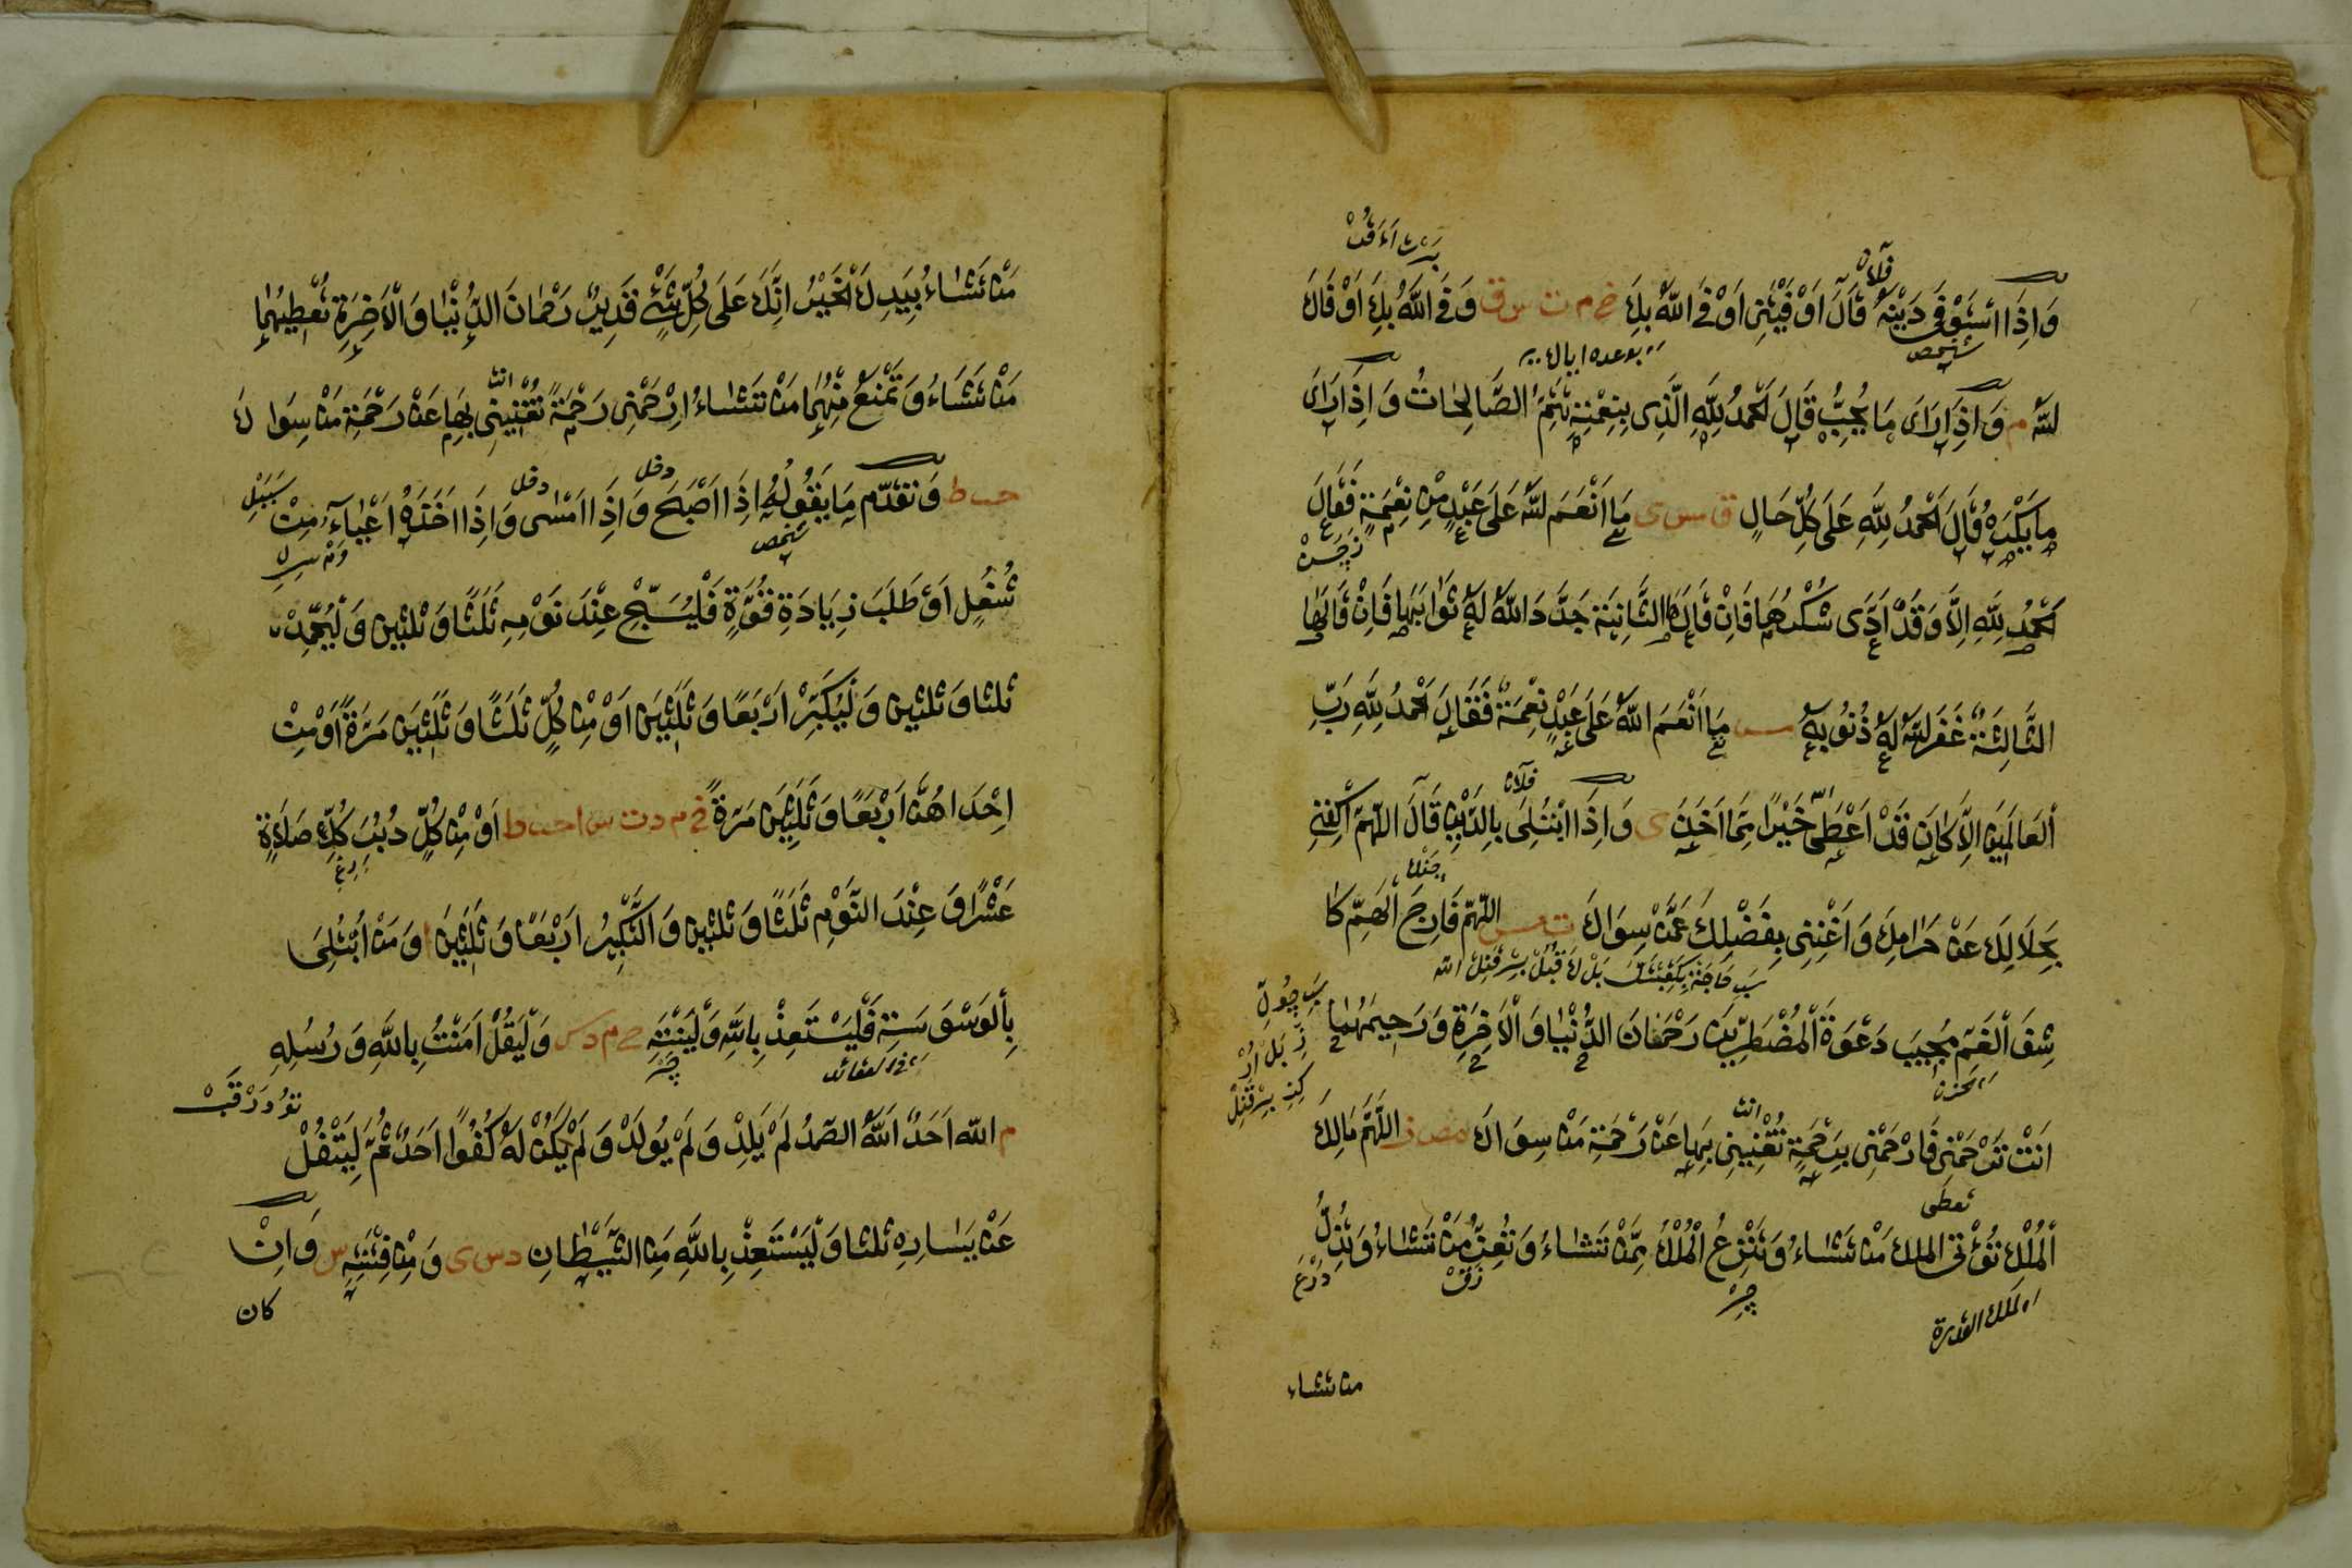 وَاِذَا اسْتَوْفٰى دَيْنَهُ قَالَ اَوْفَيْتَنِى اَوْفَى اللّٰهُ بِكَ خ م ت س ق وَفَى اللّٰهُ بِكَ اَوْ قَالَ
فلان
شخص
بوعده
لله م وَاِذَا رَاَى مَا يُحِبُّ قَالَ الْحَمْدُ لِلّٰهِ الَّذِى بِنِعْمَتِهٖ تَتِمُّ الصَّالِحَاتُ وَاِذَا رَاَى
مَا يَكْرَهُ قَالَ الْحَمْدُ لِلّٰهِ عَلٰى كُلِّ حَالٍ ق مس ى مَا اَنْعَمَ اللّٰهُ عَلٰى عَبْدٍ مِنْ نِعْمَةٍ فَقَالَ
الْحَمْدُ لِلّٰهِ اِلَّا وَقَدْ اَدّٰى شُكْرَهَا فَاِنْ قَالَهَا الثَّانِيَةَ جَدَّدَ اللّٰهُ لَهُ ثَوَابَهَا فَاِنْ قَالَهَا
الثَّالِثَةَ غَفَرَ اللّٰهُ لَهُ ذُنُوبَهُ مس مَا اَنْعَمَ اللّٰهُ عَلٰى عَبْدٍ نِعْمَةً فَقَالَ الْحَمْدُ لِلّٰهِ رَبِّ
فلان
الْعَالَمِينَ اِلَّا كَانَ قَدْ اَعْطٰى خَيْرًا مِمَّا اَخَذَ ى وَاِذَا ابْتُلِىَ بِالدَّيْنِ قَالَ اللّٰهُمَّ اكْفِنِى
بِحَلَالِكَ عَنْ حَرَامِكَ وَاَغْنِنِى بِفَضْلِكَ عَمَّنْ سِوَاكَ ت مس اللّٰهُمَّ فَارِجَ الْهَمِّ كَا
شِفَ الْغَمِّ مُجِيبَ دَعْوَةِ الْمُضْطَرِّينَ رَحْمٰنَ الدُّنْيَا وَالْاٰخِرَةِ وَرَحِيمَهُمَا
اى الحزن
انت
اَنْتَ تَرْحَمُنِى فَارْحَمْنِى بِرَحْمَةٍ تُغْنِينِى بِهَا عَنْ رَحْمَةِ مَنْ سِوَاكَ مص ر اللّٰهُمَّ مَالِكَ
تعطى
الْمُلْكِ تُؤْتِى الملك مَنْ تَشَاءُ وَتَنْزِعُ الْمُلْكَ مِمَّنْ تَشَاءُ وَتُعِزُّ مَنْ تَشَاءُ وَتُذِلُّ
اى الملك القدرة
من تشاء
مَنْ تَشَاءُ بِيَدِكَ الْخَيْرُ اِنَّكَ عَلٰى كُلِّ شَىْءٍ قَدِيرٌ رَحْمَانَ الدُّنْيَا وَالْاٰخِرَةِ تُعْطِيهِمَا
انت
مَنْ تَشَاءُ وَتَمْنَعُ مِنْهُمَا مَنْ تَشَاءُ اِرْحَمْنِى رَحْمَةً تُغْنِينِى بِهَا عَنْ رَحْمَةِ مَنْ سِوَاكَ
دخل
دخل
حب ط وَتَقَدَّمَ مَا يَقُولُهُ اِذَا اَصْبَحَ وَاِذَا اَمْسٰى وَاِذَا اَخَذَهُ اِعْيَاءٌ مِنْ
شخص
شُغْلٍ اَوْ طَلَبَ زِيَادَةِ قُوَّةٍ فَلْيُسَبِّحْ عِنْدَ نَوْمِهِ ثَلٰثًا وَثَلٰثِينَ وَلْيَحْمِدْ
ثَلٰثًا وَثَلٰثِينَ وَلْيُكَبِّرْ اَرْبَعًا وَثَلٰثِينَ اَوْ مِنْ كُلٍّ ثَلٰثًا وَثَلٰثِينَ مَرَّةً اَوْ مِنْ
اِحْدَاهُنَّ اَرْبَعًا وَثَلٰثِينَ مَرَّةً خ م د ت س ا حب ط اَوْ مِنْ كُلٍّ دُبُرَ كُلِّ صَلَاةٍ
عَشْرًا وَعِنْدَ النَّوْمِ ثَلٰثًا وَثَلٰثِينَ وَالتَّكْبِيرُ اَرْبَعًا وَثَلٰثِينَ ا وَمَنِ ابْتُلِىَ
بِالْوَسْوَسَةِ فَلْيَسْتَعِذْ بِاللّٰهِ وَلْيَنْتَهِ خ م د س وَلْيَقُلْ اٰمَنْتُ بِاللّٰهِ وَرُسُلِهِ
م اللّٰه اَحَدٌ اَللّٰهُ الصَّمَدُ لَمْ يَلِدْ وَلَمْ يُولَدْ وَلَمْ يَكُنْ لَهُ كُفُوًا اَحَدٌ ثُمَّ لِيَتْفُلْ
عَنْ يَسَارِهِ ثَلٰثًا وَلْيَسْتَعِذْ بِاللّٰهِ مِنَ الشَّيْطَانِ د س ى وَمِنْ فِتْنَتِهِ س وَاِنْ
كان